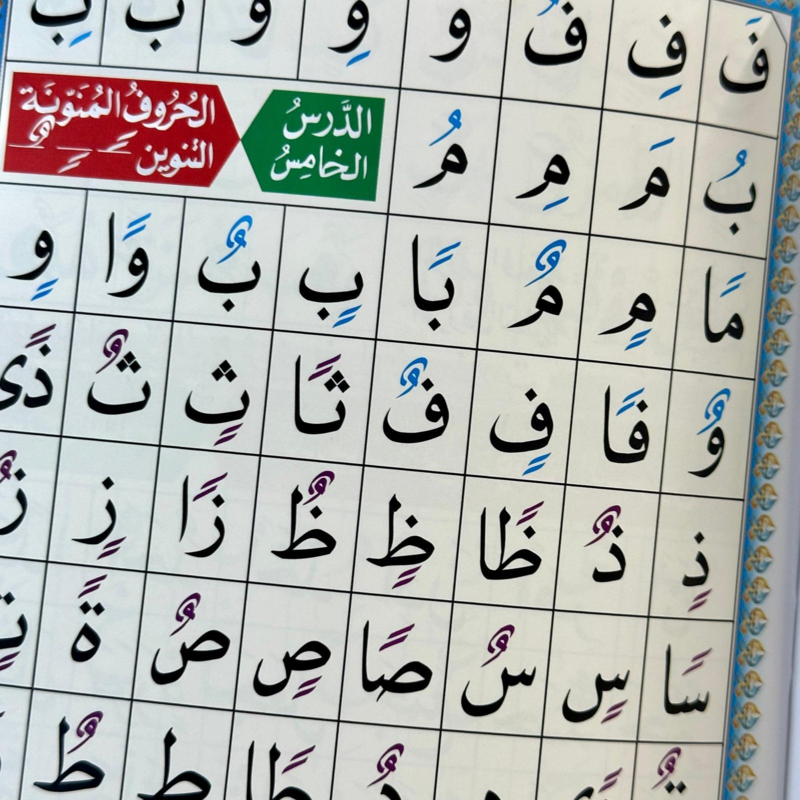 فَ فِ فُ و وِ و ب بِ
بُ مَ مِ مُ
الدَّرسُ الخامِسُ
الحُرُوفُ المُنَوّنَة
التنوين ـًـ ـٍـ ـٌـ
مًا مٍ مٌ بًا بٍ بٌ وًا وٍ
وٌ فًا فٍ فٌ ثًا ثٍ ثٌ ذًى
ذٍ ذٌ ظًا ظٍ ظٌ زًا زٍ زٌ
سًا سٍ سٌ صًا صٍ صٌ ةً
طًا طٍ طٌ